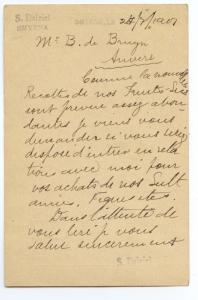 S. Dalrici
SMYRNA
Mr B. de Bruyn
Anvers
Comme la nouvelle
Recolte de nos Fruits Secs
sont prevue assez abon
dantes je viens vous
demander si vous seriez
disposé d'entrer en rela
tions avec moi pour
vos achats de nos Sult
anines, Figues etc.
Dans l'attente de
vous lire je vous
salue sincerement